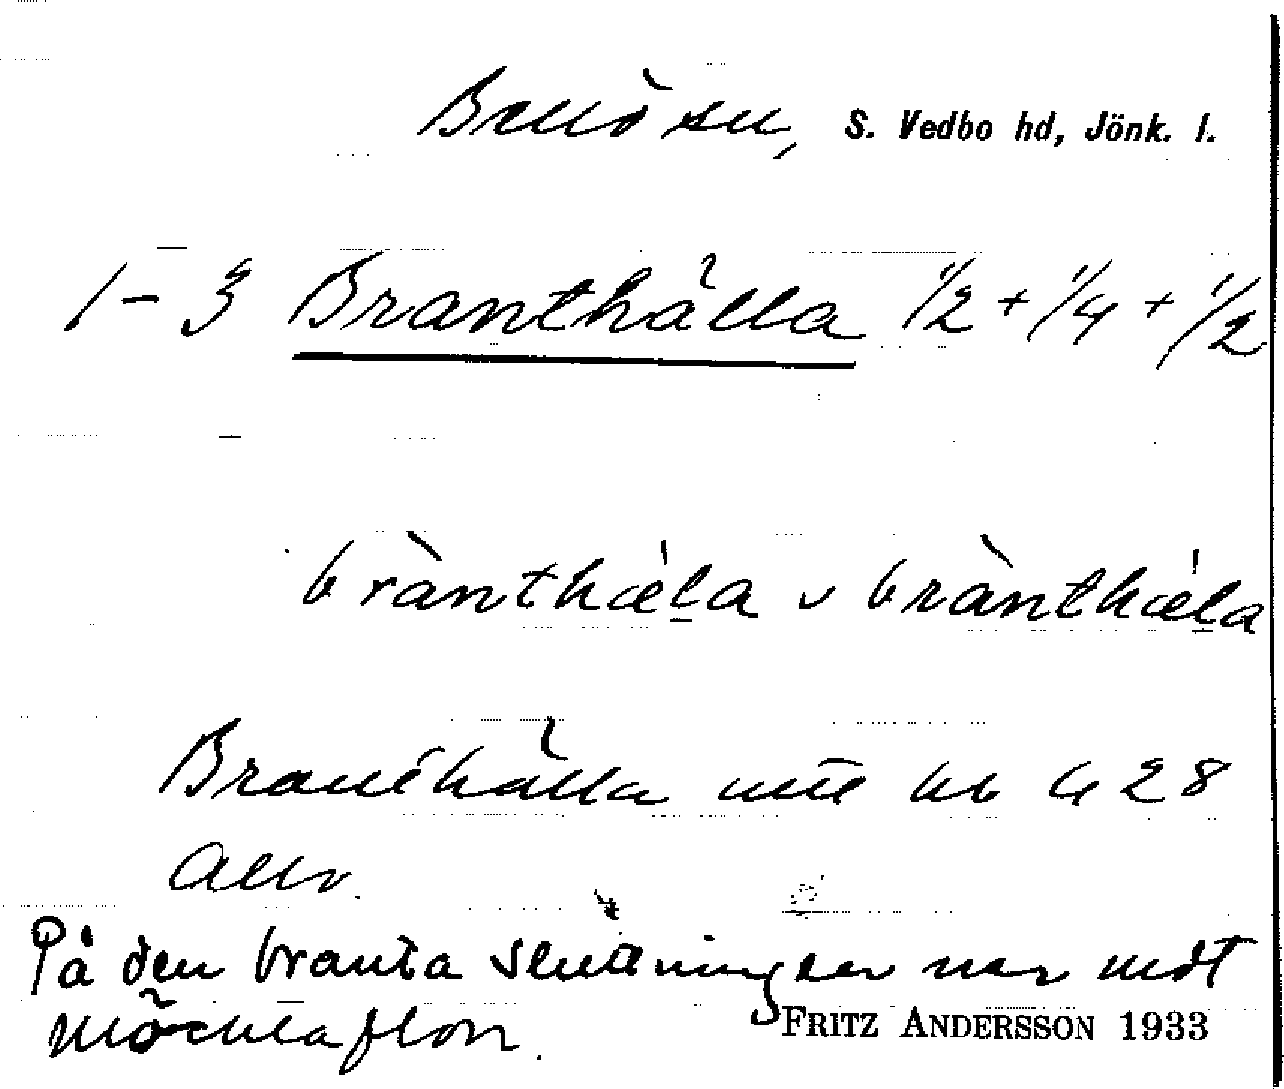 Bellösu, S. Vedbo hd, Jönk. l.
1-3 Branthälla 1/2 + 1/4 + 1/2
brànthæla v brànthæla
Branthälla 428
Allv.
På den branta sluttningen ner mot
flon.
FRITZ ANDERSSON 1933